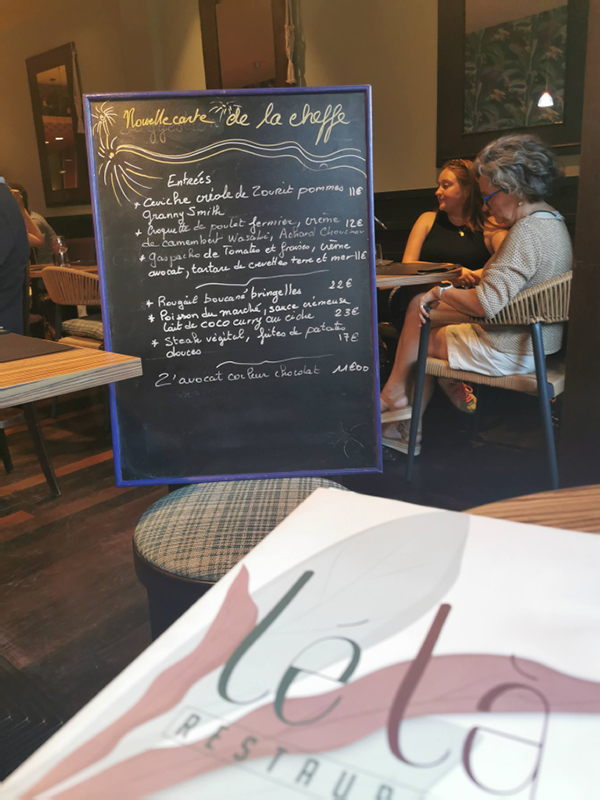 Nouvelle carte de la cheffe
Entrées
* Ceviche créole de Zourit pommes 11€
Granny Smith
* Croquette de poulet fermier, crème 12€
de camembert Wasabi, Achard Chouchou
* gaspacho de Tomate et fraises, crème
avocat, tartare de crevettes terre et mer 11€
* Rougail boucané bringelles 22€
* Poisson du marché, sauce crémeuse
lait de coco curry au cidre 23€
* Steak végétal, frites de patate
douces 17€
Z'avocat couleur chocolat 11€00
lé là
RESTAUR